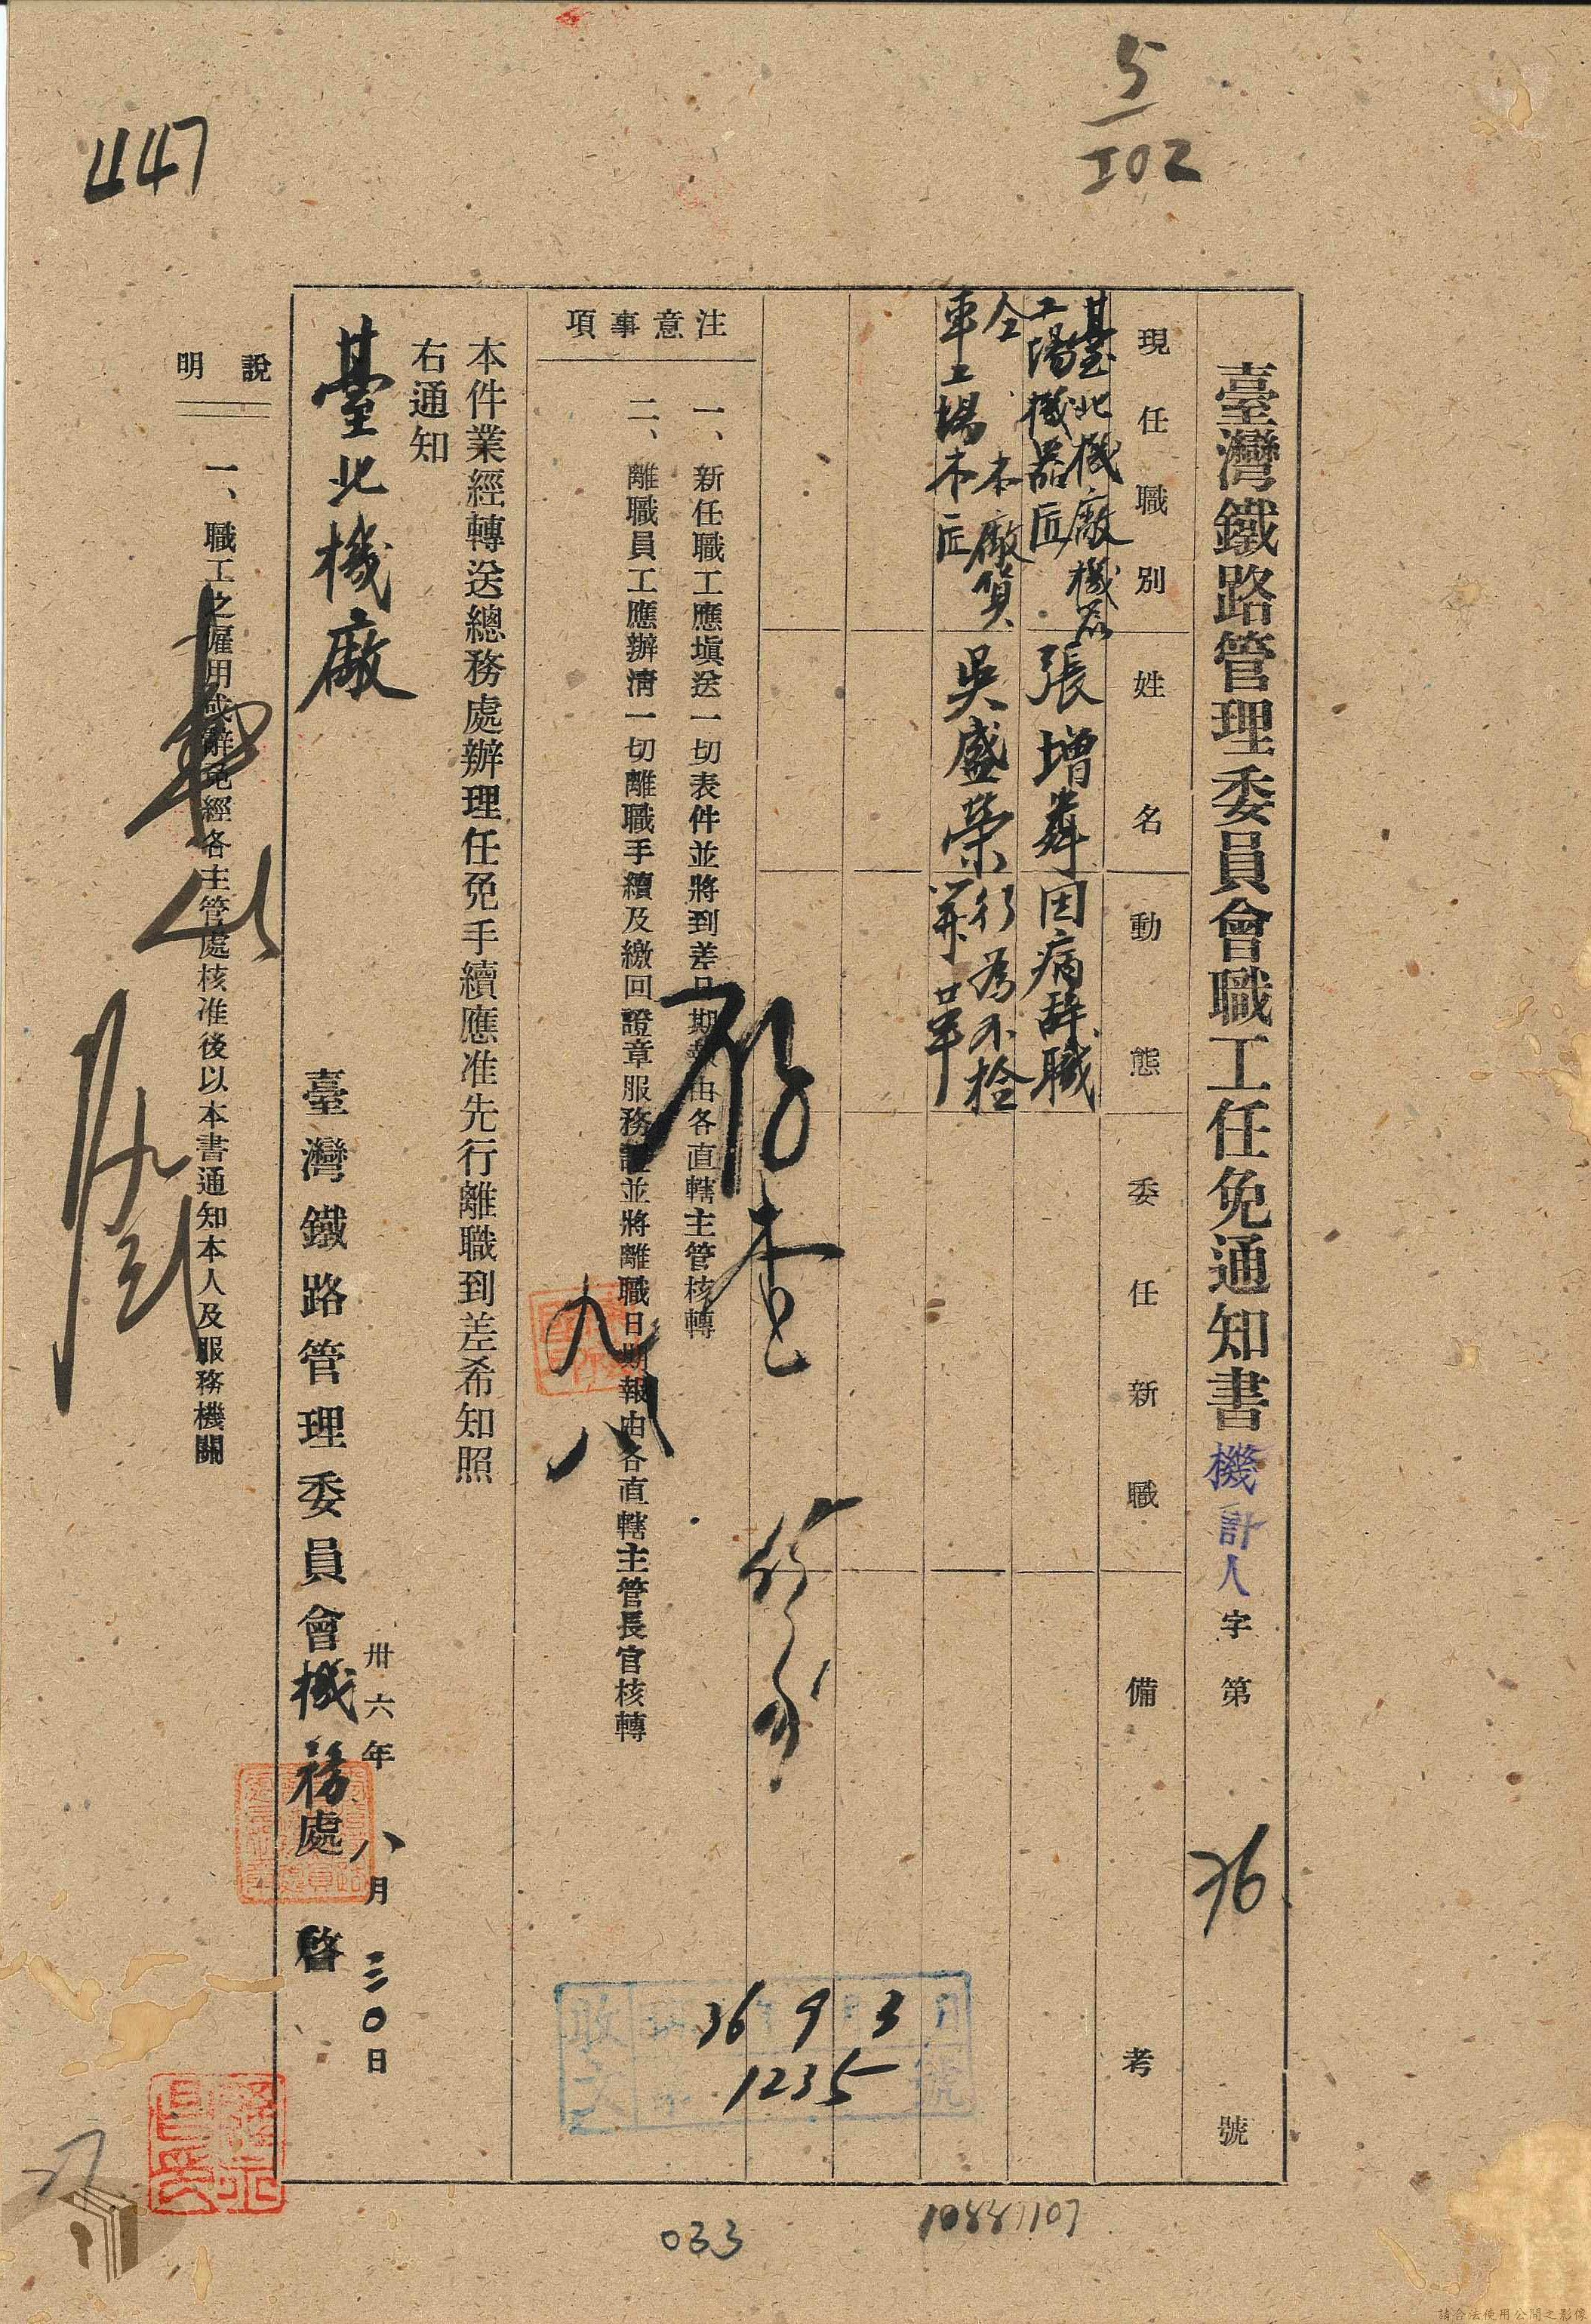 5
102
447
臺灣鐵路管理委員會職工任免通知書 機計人字第 76 號
現任職別
姓名
動態
委任新職
備考
臺北機廠機器
工場機器匠
張增彝
因病辭職
仝 本廠貨
車工場木匠
吳盛榮
行為不檢
開革
注意事項
一、新任職工應填送一切表件並將到差日期報由各直轄主管核轉
二、離職員工應辦清一切離職手續及繳回證章服務證並將離職日期報由各直轄主管長官核轉
存查
九
八
本件業經轉送總務處辦理任免手續應准先行離職到差希知照
右通知
臺北機廠
卅六年八月三〇日
臺灣鐵路管理委員會機務處啓
說明
一、職工之雇用或辭免經各主管處核准後以本書通知本人及服務機關
收文
36 9 3
1235
號
27
033
10881107
請合法使用公開之影像